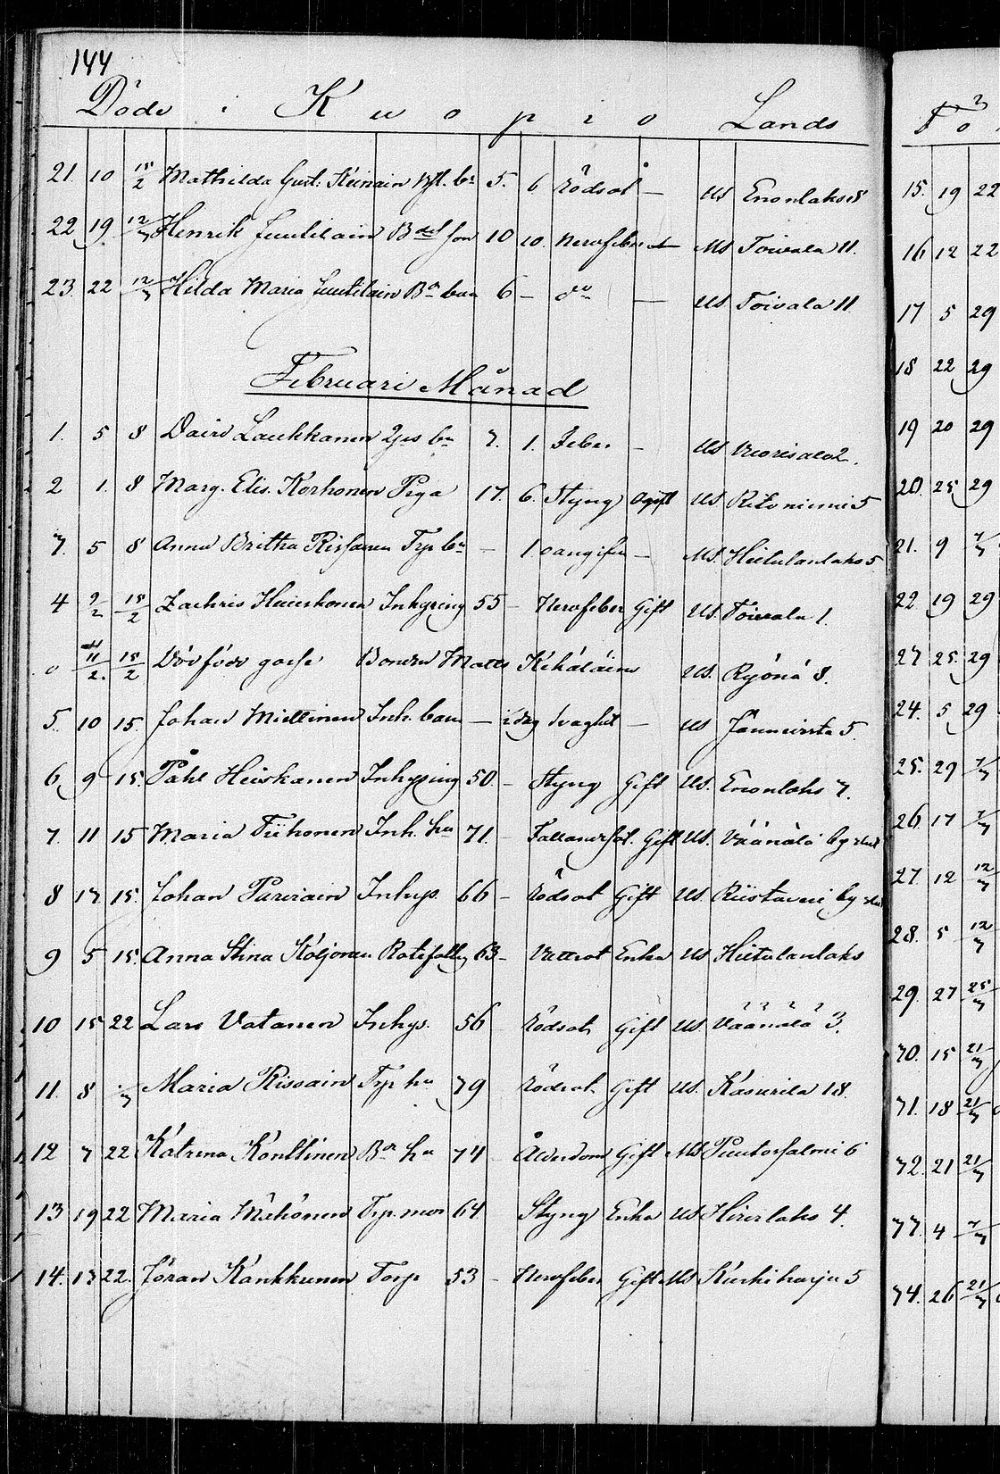 144
Döde i Kuopio Lands
21. 10 15/2 Mathilda Gust: Keinäin bn 5. 6 Rödsot — US Enonlaks 8
22 19 12/3 Henrik Juutilain Bd son 10 10. Nervfeber — US Toivala 11.
23 22 12/3 Hilda Maria Juutilain Ba barn 6 — do — US Toivala 11
Februari Månad
1. 5 8 David Laukkanen bn 7. 1. Feber — US Vuorisalo 2.
2 1. 8 Marg. Elis. Korhonen Piga 17. 6. Styng Ogift US Ritoniemi 5
3. 5 8 Anna Britha Rissanen Trp bn — 1 oangifn — US. Hietulanlaks 5
4 9/2 15/2 Zachris Heiskonen Inhysing 55 — Nervfeber Gift US. Toivala 1.
0 11/2. 15/2 Dödfödd gosse Bonden Matts Kehäläin US. Ryönä 8.
5. 10 15. Johan Miettinen Inh. barn — 1 dag svaghet — US Jännevirta 5.
6 9 15. Påhl Heiskanen Inhysing 50. — Styng Gift US. Enonlaks 7.
7. 11 15 Maria Tiihonen Inh. hu 71. Fallandsot. Gift US. Väänälä by
8 17 15. Johan Parviain Inhys. 66 — Rödsot Gift US. Riistaveri by
9 5 15. Anna Stina Koljonen Rotefattig 63 — Vattsot Enka US Hietulanlaks
10 15 22 Lars Vatanen Inhys. 56 Rödsot Gift US Väänälä 3.
11. 8 Maria Rissain Trp hu 79 Rödsot. Gift US. Kasurila 18.
12 7 22 Katrina Könttinen Ba hu 74 Ålderdom Gift US Puutosalmi 6
13 19 22 Maria Mähönen Trp. mor 64 Styng Enka US Hirvilaks 4.
14. 17 22. Jöran Kankkunen Torp 53 — Nervfeber Gift US Kurkiharju 5
15. 19 22
16 12 22
17 5 29
18 22 29
19 20 29
20. 25 29
21. 9 7/3
22 19 29
23 25 29
24. 5 29
25. 29 7/3
26 17 7/3
27. 12 12/3
28. 5 12/3
29. 27 25/3
30. 15 21/3
31. 18 21/3
32. 21 21/3
33. 4 7/3
34. 26 21/3